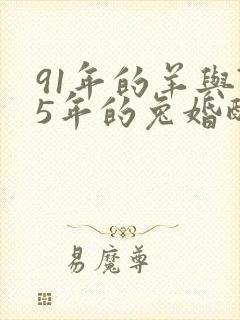 91年的羊與
5年的兔婚
易魔尊